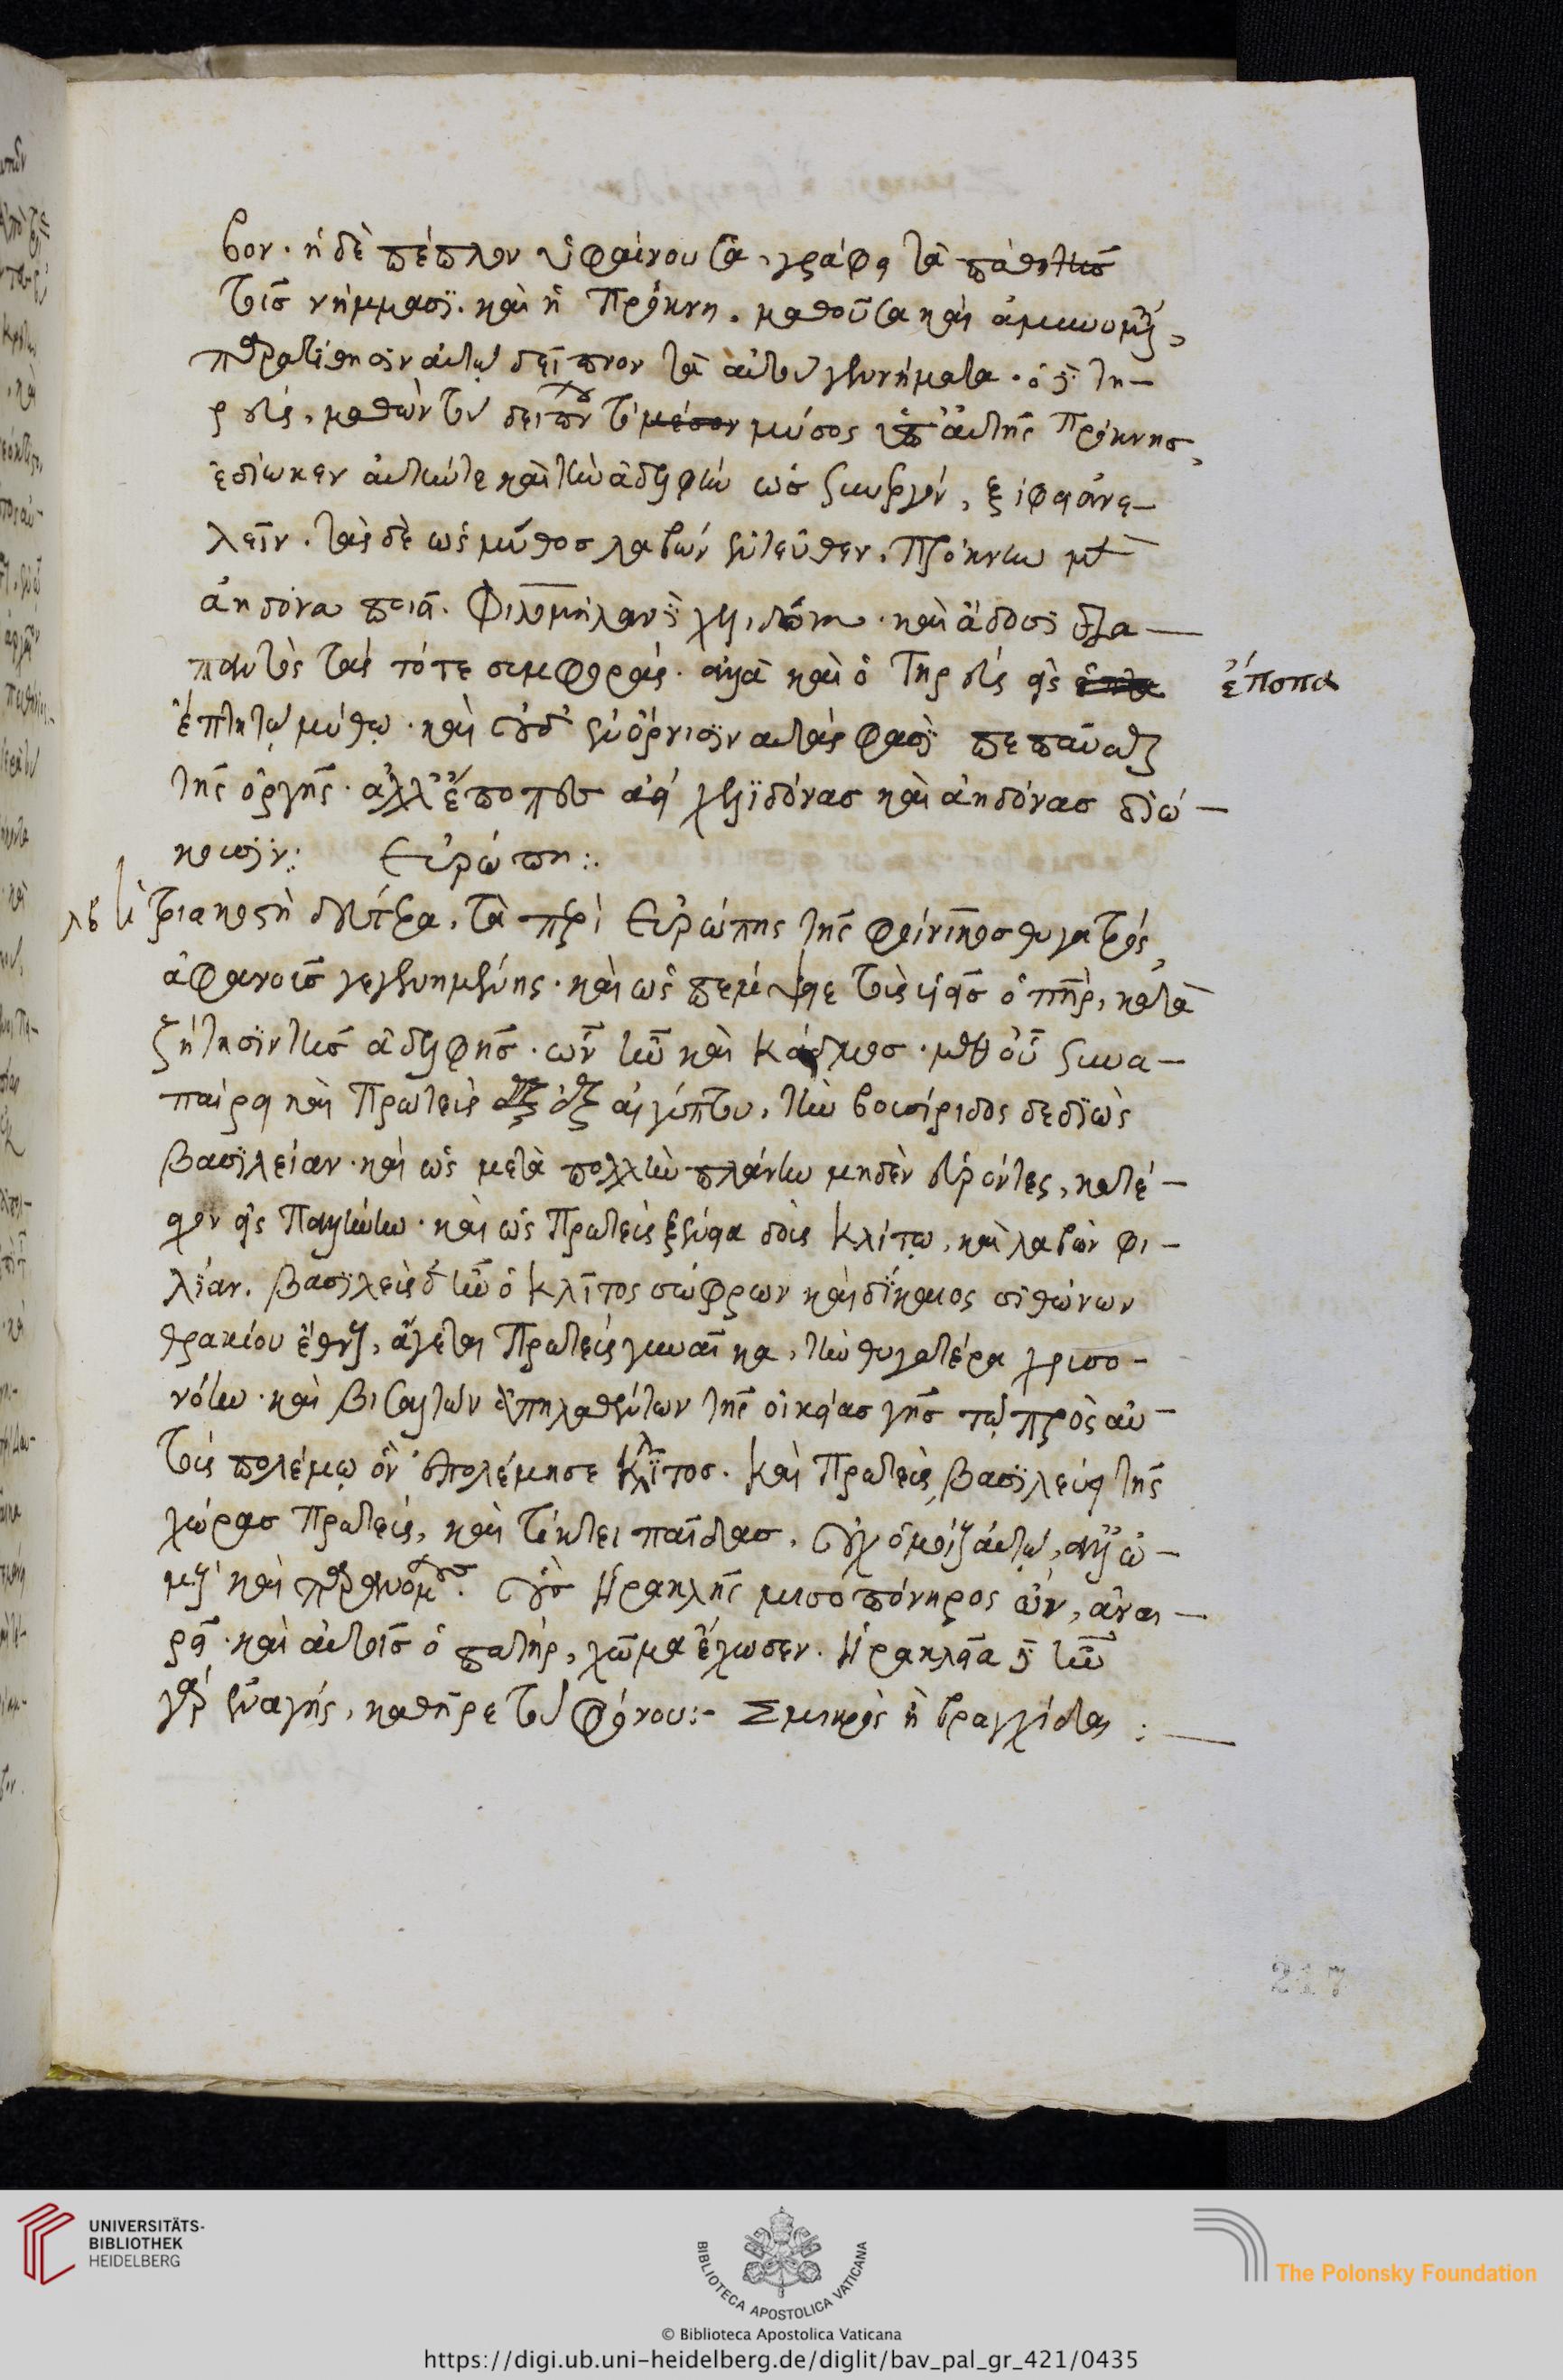 βον· ἡ δὲ πέπλον ὑφαίνουσα, γράφει τὰ πάθη τοῖς
τοῖς νήμμασι. καὶ ἡ Πρόκνη, μαθοῦσα καὶ ἀμυνομένη,
παρατίθησιν αὐτῷ δεῖπνον τὰ αὐτοῦ γεννήματα. ὁ δὲ Τη-
ρεὺς, μαθὼν τοῦ δείπνου τὸ μέσον μύσος ὑπ' αὐτῆς Πρόκνης,
ἐδίωκεν αὐτήν τε καὶ τὴν ἀδελφὴν ὡς συνεργὸν, ξίφει ἀνε-
λεῖν. τὰς δὲ ὡς μῦθος λαβὼν ἐντεῦθεν, Πρόκνην μὲν
ἀηδόνα ποιεῖ. Φιλομήλαν δὲ χελιδόνα. καὶ ᾄδουσι διὰ
παντὸς τὰς τότε συμφοράς. ἀλλὰ καὶ ὁ Τηρεὺς εἰς
ἔποπα
ἔπτη τῷ μύθῳ. καὶ οὐδ' ἐν ὄρνισιν αὐτάς φασι πεπαῦσθαι
τῆς ὀργῆς. ἀλλ' ἔποπες ἀεὶ χελιδόνας καὶ ἀηδόνας διώ-
κουσιν: Εὐρώπη:
λβ Ἡ τριακοστὴ δευτέρα, τὰ περὶ Εὐρώπης τῆς Φοίνικος θυγατρός,
ἀφανοῦς γεγενημένης. καὶ ὡς πέμψειε τοὺς υἱεῖς ὁ πατὴρ, κατὰ
ζήτησιν τῆς ἀδελφῆς. ὧν ἦν καὶ Κάδμος. μεθ' οὗ συνα-
παίρει καὶ Πρωτεὺς ἐξ Αἰγύπτου, τὴν Βουσίριδος δεδιὼς
βασιλείαν. καὶ ὡς μετὰ πολλὴν πλάνην μηδὲν εὑρόντες, κατέ-
σχον εἰς Παλλήνην. καὶ ὡς Πρωτεὺς ξένια δοὺς Κλίτῳ, καὶ λαβὼν φι-
λίαν. βασιλεὺς δ' ἦν ὁ Κλῖτος σώφρων καὶ δίκαιος Σιθώνων
Θρᾳκίου ἔθνους, ἄγεται Πρωτεὺς γυναῖκα, τὴν θυγατέρα Χρυσο-
νόην. καὶ Βισαλτῶν ἀπηλαθέντων τῆς οἰκείας γῆς τῷ πρὸς αὐ-
τοὺς πολέμῳ ὃν ἐπολέμησε Κλῖτος. καὶ Πρωτεὺς, βασιλεύει τῆς
χώρας Πρωτεὺς, καὶ τίκτει παῖδας, οὐχ ὁμοίους αὐτῷ, ἀλλ' ὠ-
μοὺς καὶ παρανόμους. οὓς Ἡρακλῆς μισοπόνηρος ὢν, ἀναι-
ρεῖ. καὶ αὐτοῖς ὁ πατὴρ, χῶμα ἔχωσεν. Ἡρακλέα δὲ ἦν
γὰρ ἐναγής, καθῆρε τοῦ φόνου:- Σμικρὸς ἢ Βραγχίδαι:
217
UNIVERSITÄTS-
BIBLIOTHEK
HEIDELBERG
BIBLIOTECA APOSTOLICA VATICANA
The Polonsky Foundation
© Biblioteca Apostolica Vaticana
https://digi.ub.uni-heidelberg.de/diglit/bav_pal_gr_421/0435